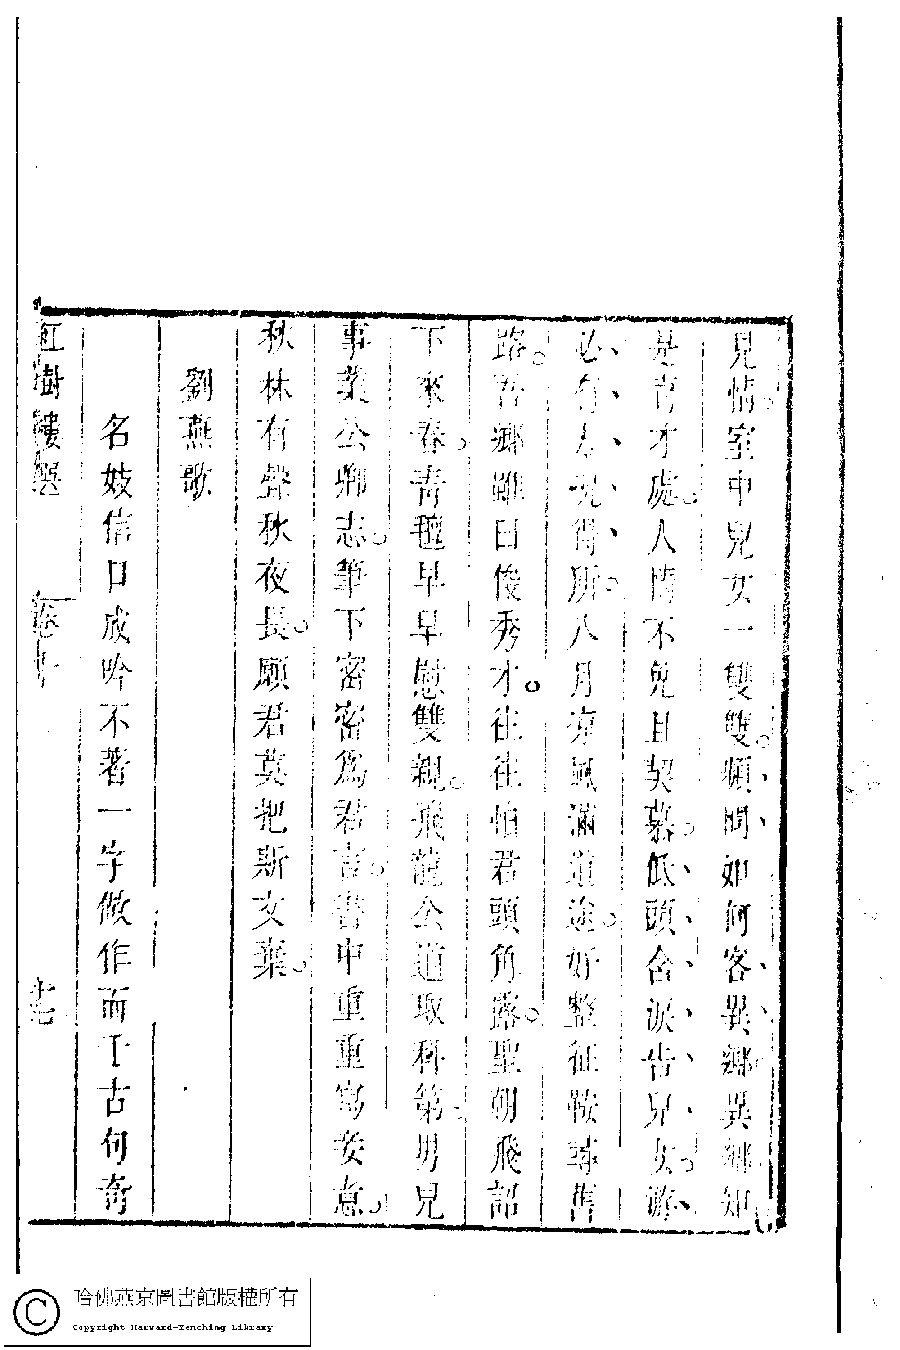 見情室中兒女一雙雙頻問如何客異鄉異鄉知
是有才處人情不免且契慕低頭含淚告兒女遊
必有方況得所八月凉風滿道途好整征鞍尋舊
路吾鄉雖曰俊秀才往往怕君頭角露聖朝飛詔
下來春青氊早早慰雙親飛龍公道取科第男兒
事業公卿志筆下密密爲君言書中重重寫妾意
秋林有聲秋夜長願君莫把斯文棄
劉燕歌
名妓信口成吟不著一字做作而千古何奇
紅樹樓選
卷十
十七
哈佛燕京圖書館版權所有
Copyright Harvard-Yenching Library